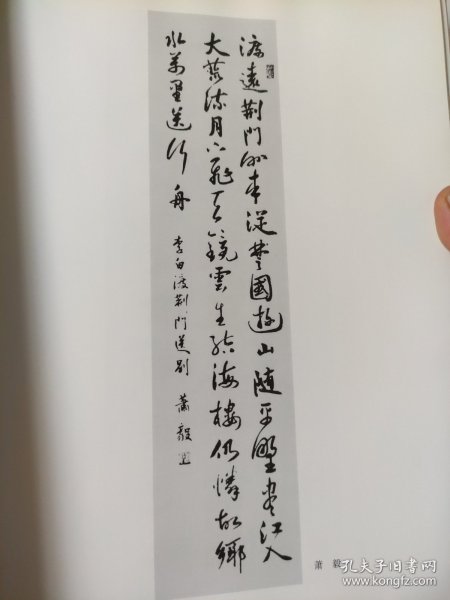 渡遠荆門外来從楚國遊山随平野盡江入
大荒流月下飛天鏡雲生結海樓仍憐故鄉
水萬里送行舟
李白渡荆門送别 蕭毅
蕭 毅
孔夫子旧书网
www.kongfz.com